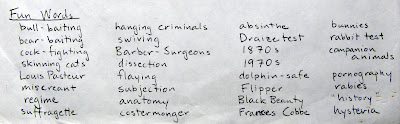 Fun Words
bull-baiting
bear-baiting
cock-fighting
skinning cats
Louis Pasteur
miscreant
regime
suffragette
hanging criminals
swiving
Barber-Surgeons
dissection
flaying
subjection
anatomy
costermonger
absinthe
Draize test
1870s
1970s
dolphin-safe
Flipper
Black Beauty
Frances Cobbe
bunnies
rabbit test
companion
animals
pornography
rabies
"history"
hysteria